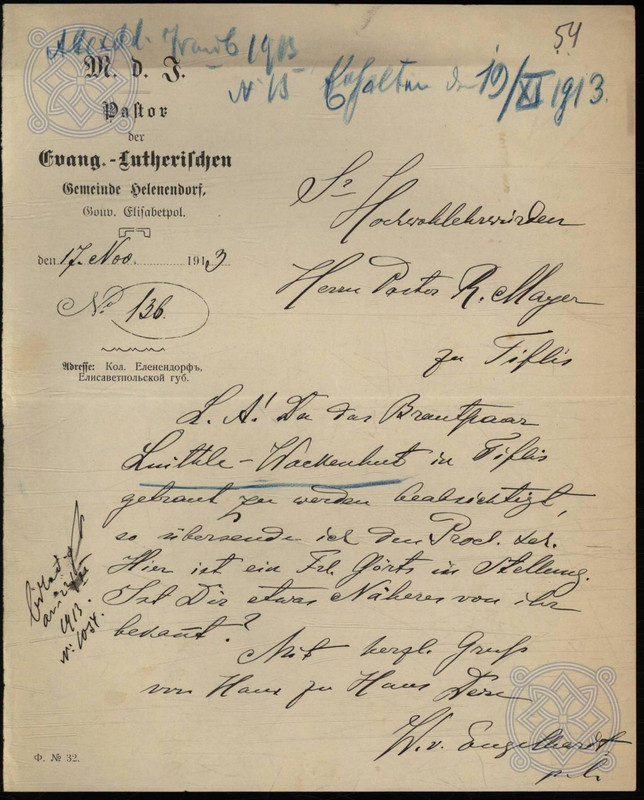 54
1913
N 15 Erhalten den 19/XI 1913.
M. d. J.
Pastor
der
Evang.-Lutherischen
Gemeinde Helenendorf,
Gouv. Elisabetpol.
den 17. Nov. 1913
No 136.
Adresse: Кол. Еленендорфъ,
Елисаветпольской губ.
Sr
Hochwohlehrwürden
Herrn Pastor R. Mayer
zu Tiflis
L. A.! Da das Brautpaar
Luithle-Wackenhut in Tiflis
getraut zu werden beabsichtigt,
so übersende ich den Procl.
Hier ist ein Frl. Görts in Stellung.
Ist Dir etwas Näheres von ihr
bekannt?
Mit herzl. Gruß
von Haus zu Haus Dein
W. v. Engelhardt
1913.
N. 1054.
Ф. № 32.